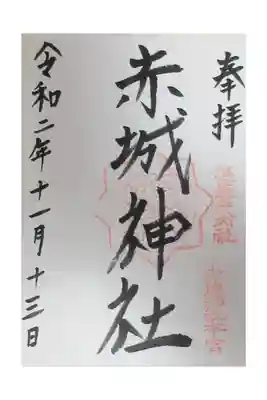 奉拝
赤城神社
令和二年十一月十三日